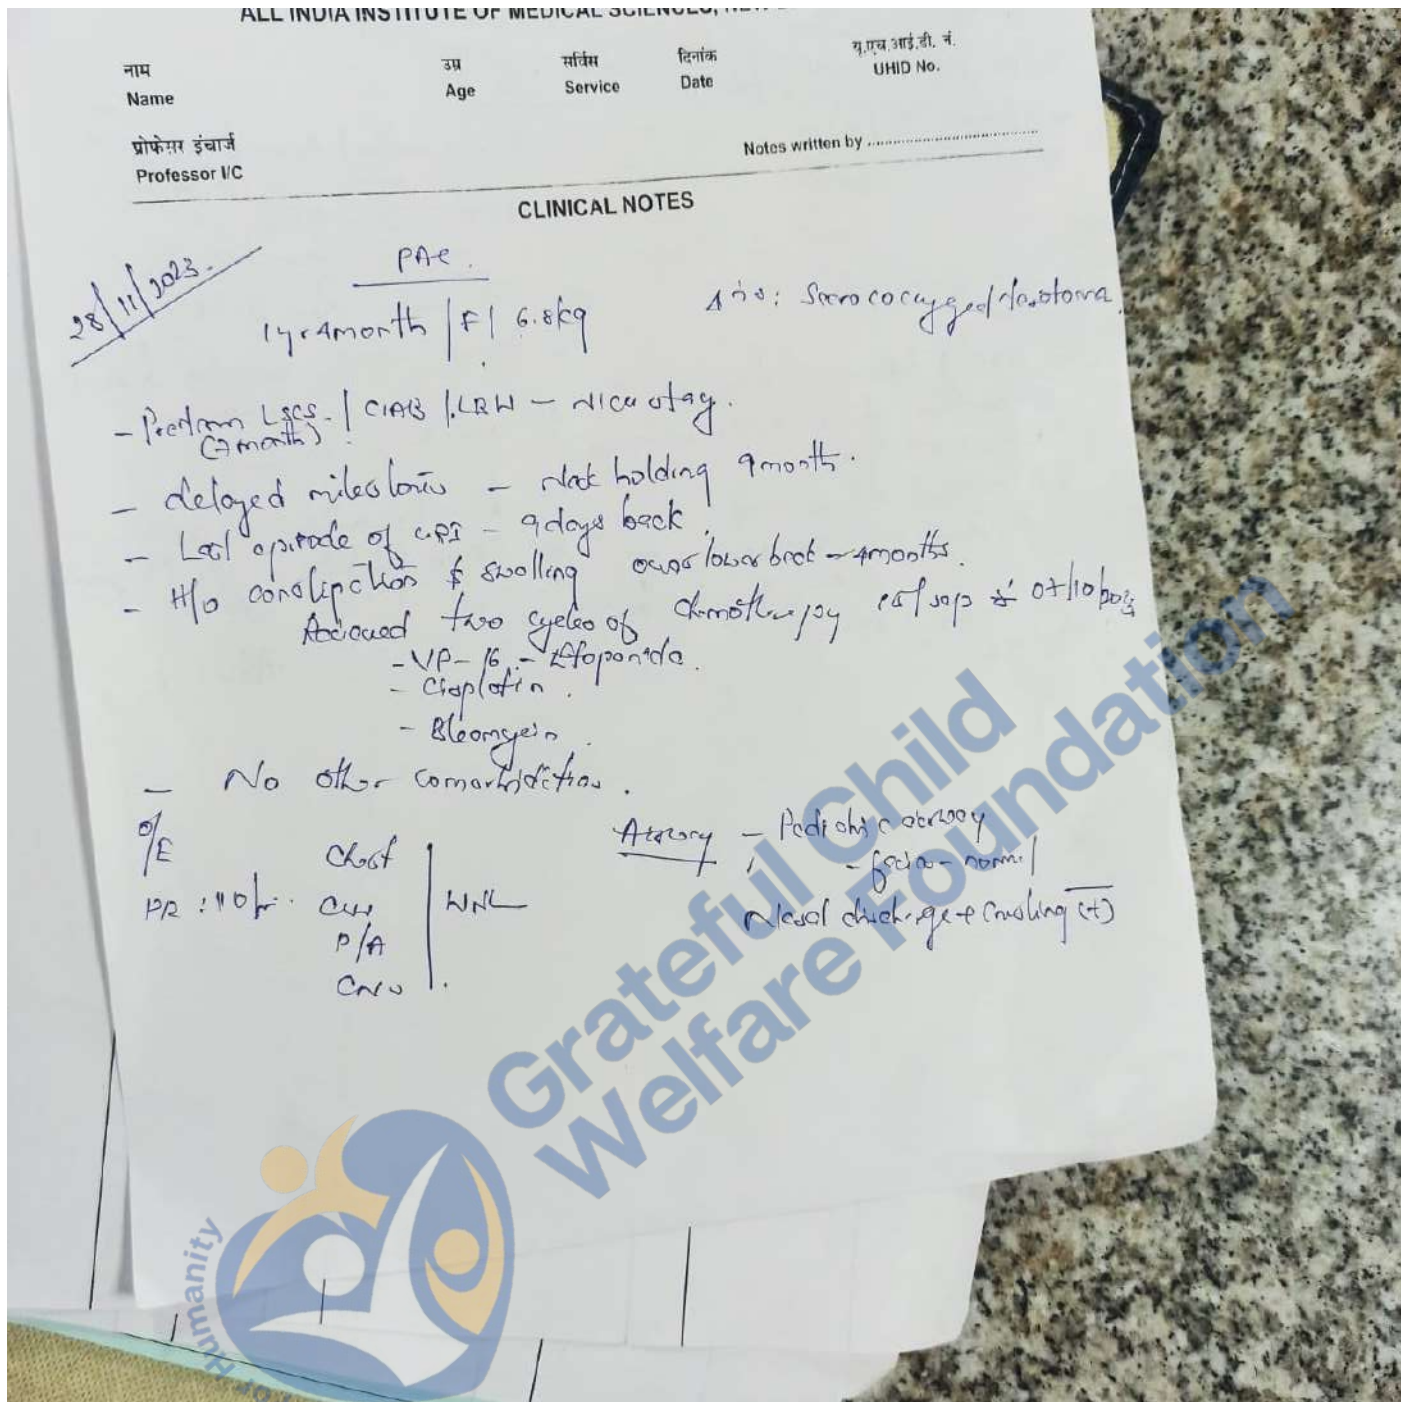 ALL INDIA INSTITUTE OF MEDICAL SCIENCES,
नाम
Name
उम्र
Age
सर्विस
Service
दिनांक
Date
यू.एच.आई.डी. नं.
UHID No.
प्रोफेसर इंचार्ज
Professor I/C
Notes written by
CLINICAL NOTES
28/11/2023.
PAC.
1yr 4month / F / 6.8kg
Sacrococcygeal teratoma
- Preterm LSCS / CIAB / LBW - NICU stay.
(7 month)
- delayed milestones - Neck holding 9month.
- Last episode of URI - 9 days back.
- H/o constipation & swelling over lower back - 4months.
Received two cycles of chemotherapy 07/10/2023
- VP-16 - Etoposide.
- Cisplatin.
- Bleomycin.
- No other comorbidities.
O/E
PR: 110/
Chest
CVS
P/A
CNS
WNL
Airway - Pediatric airway
- facies - normal
Nasal discharge + crusting (+)
Grateful Child
Welfare Foundation
Humanity